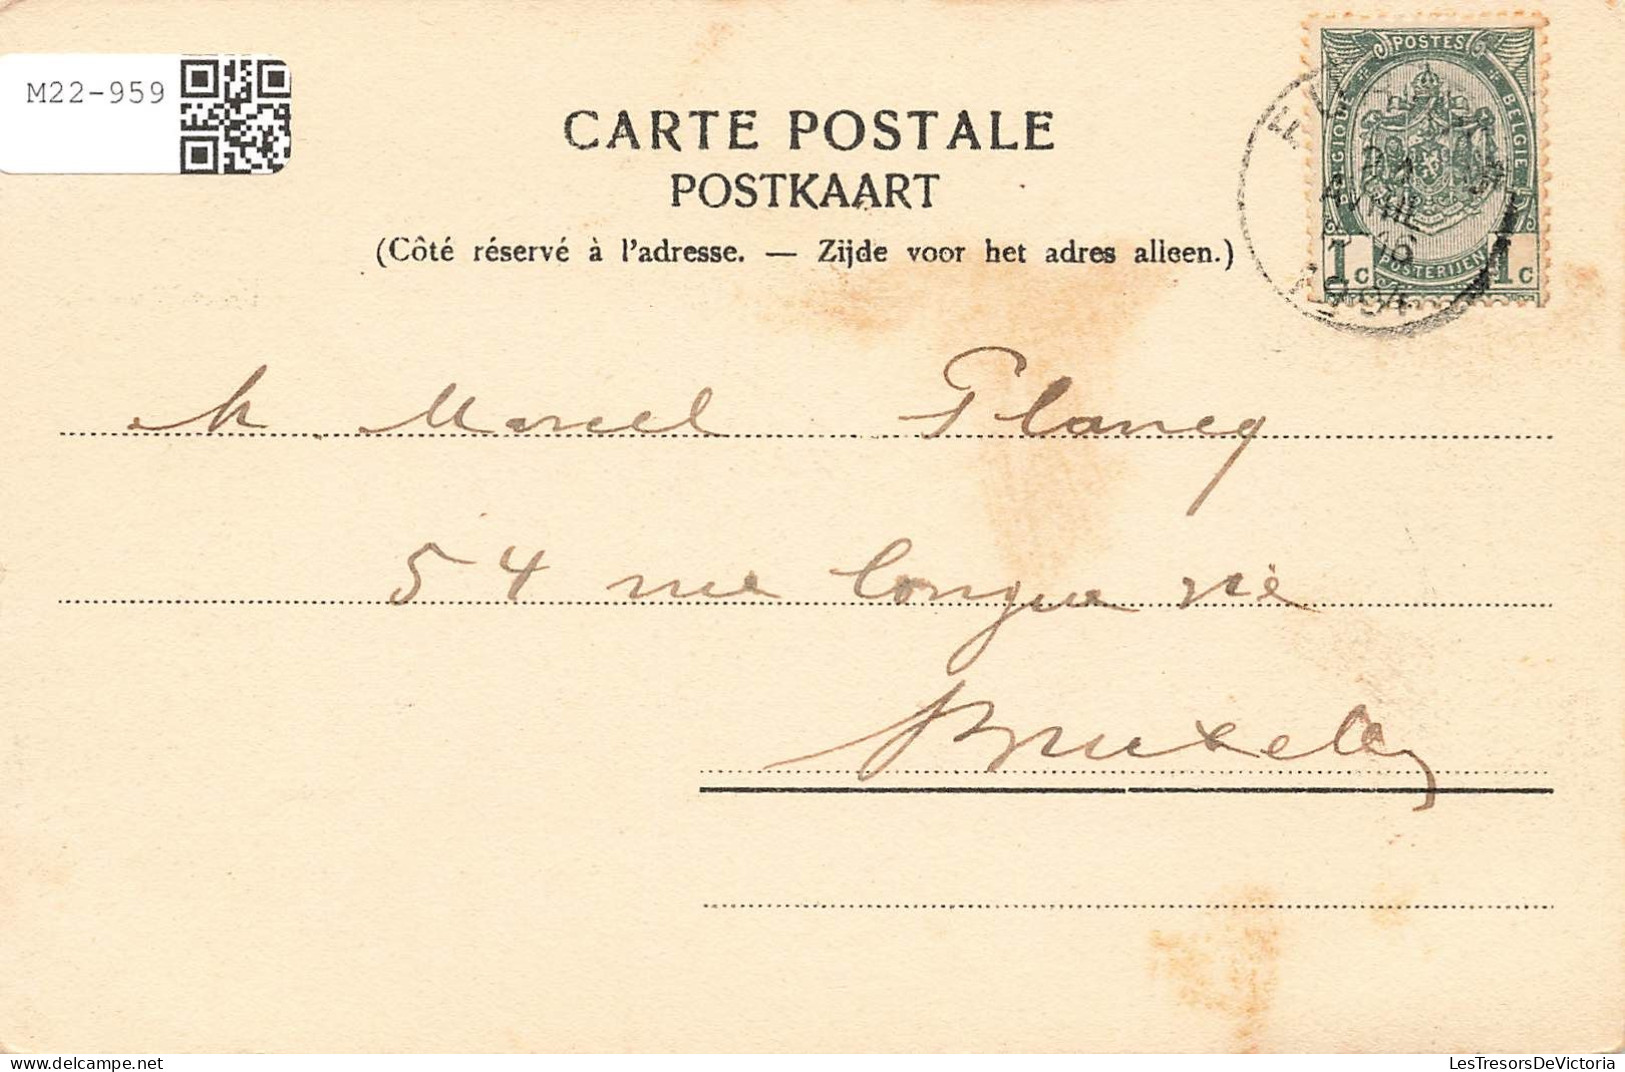 M22-959
CARTE POSTALE
POSTKAART
(Côté réservé à l'adresse. — Zijde voor het adres alleen.)
POSTES
BELGIQUE
BELGIE
POSTERIJEN
1c 1c
AVRIL
16
1904
M Marcel Plancq
54 rue longue vie
Bruxelles
LesTresorsDeVictoria